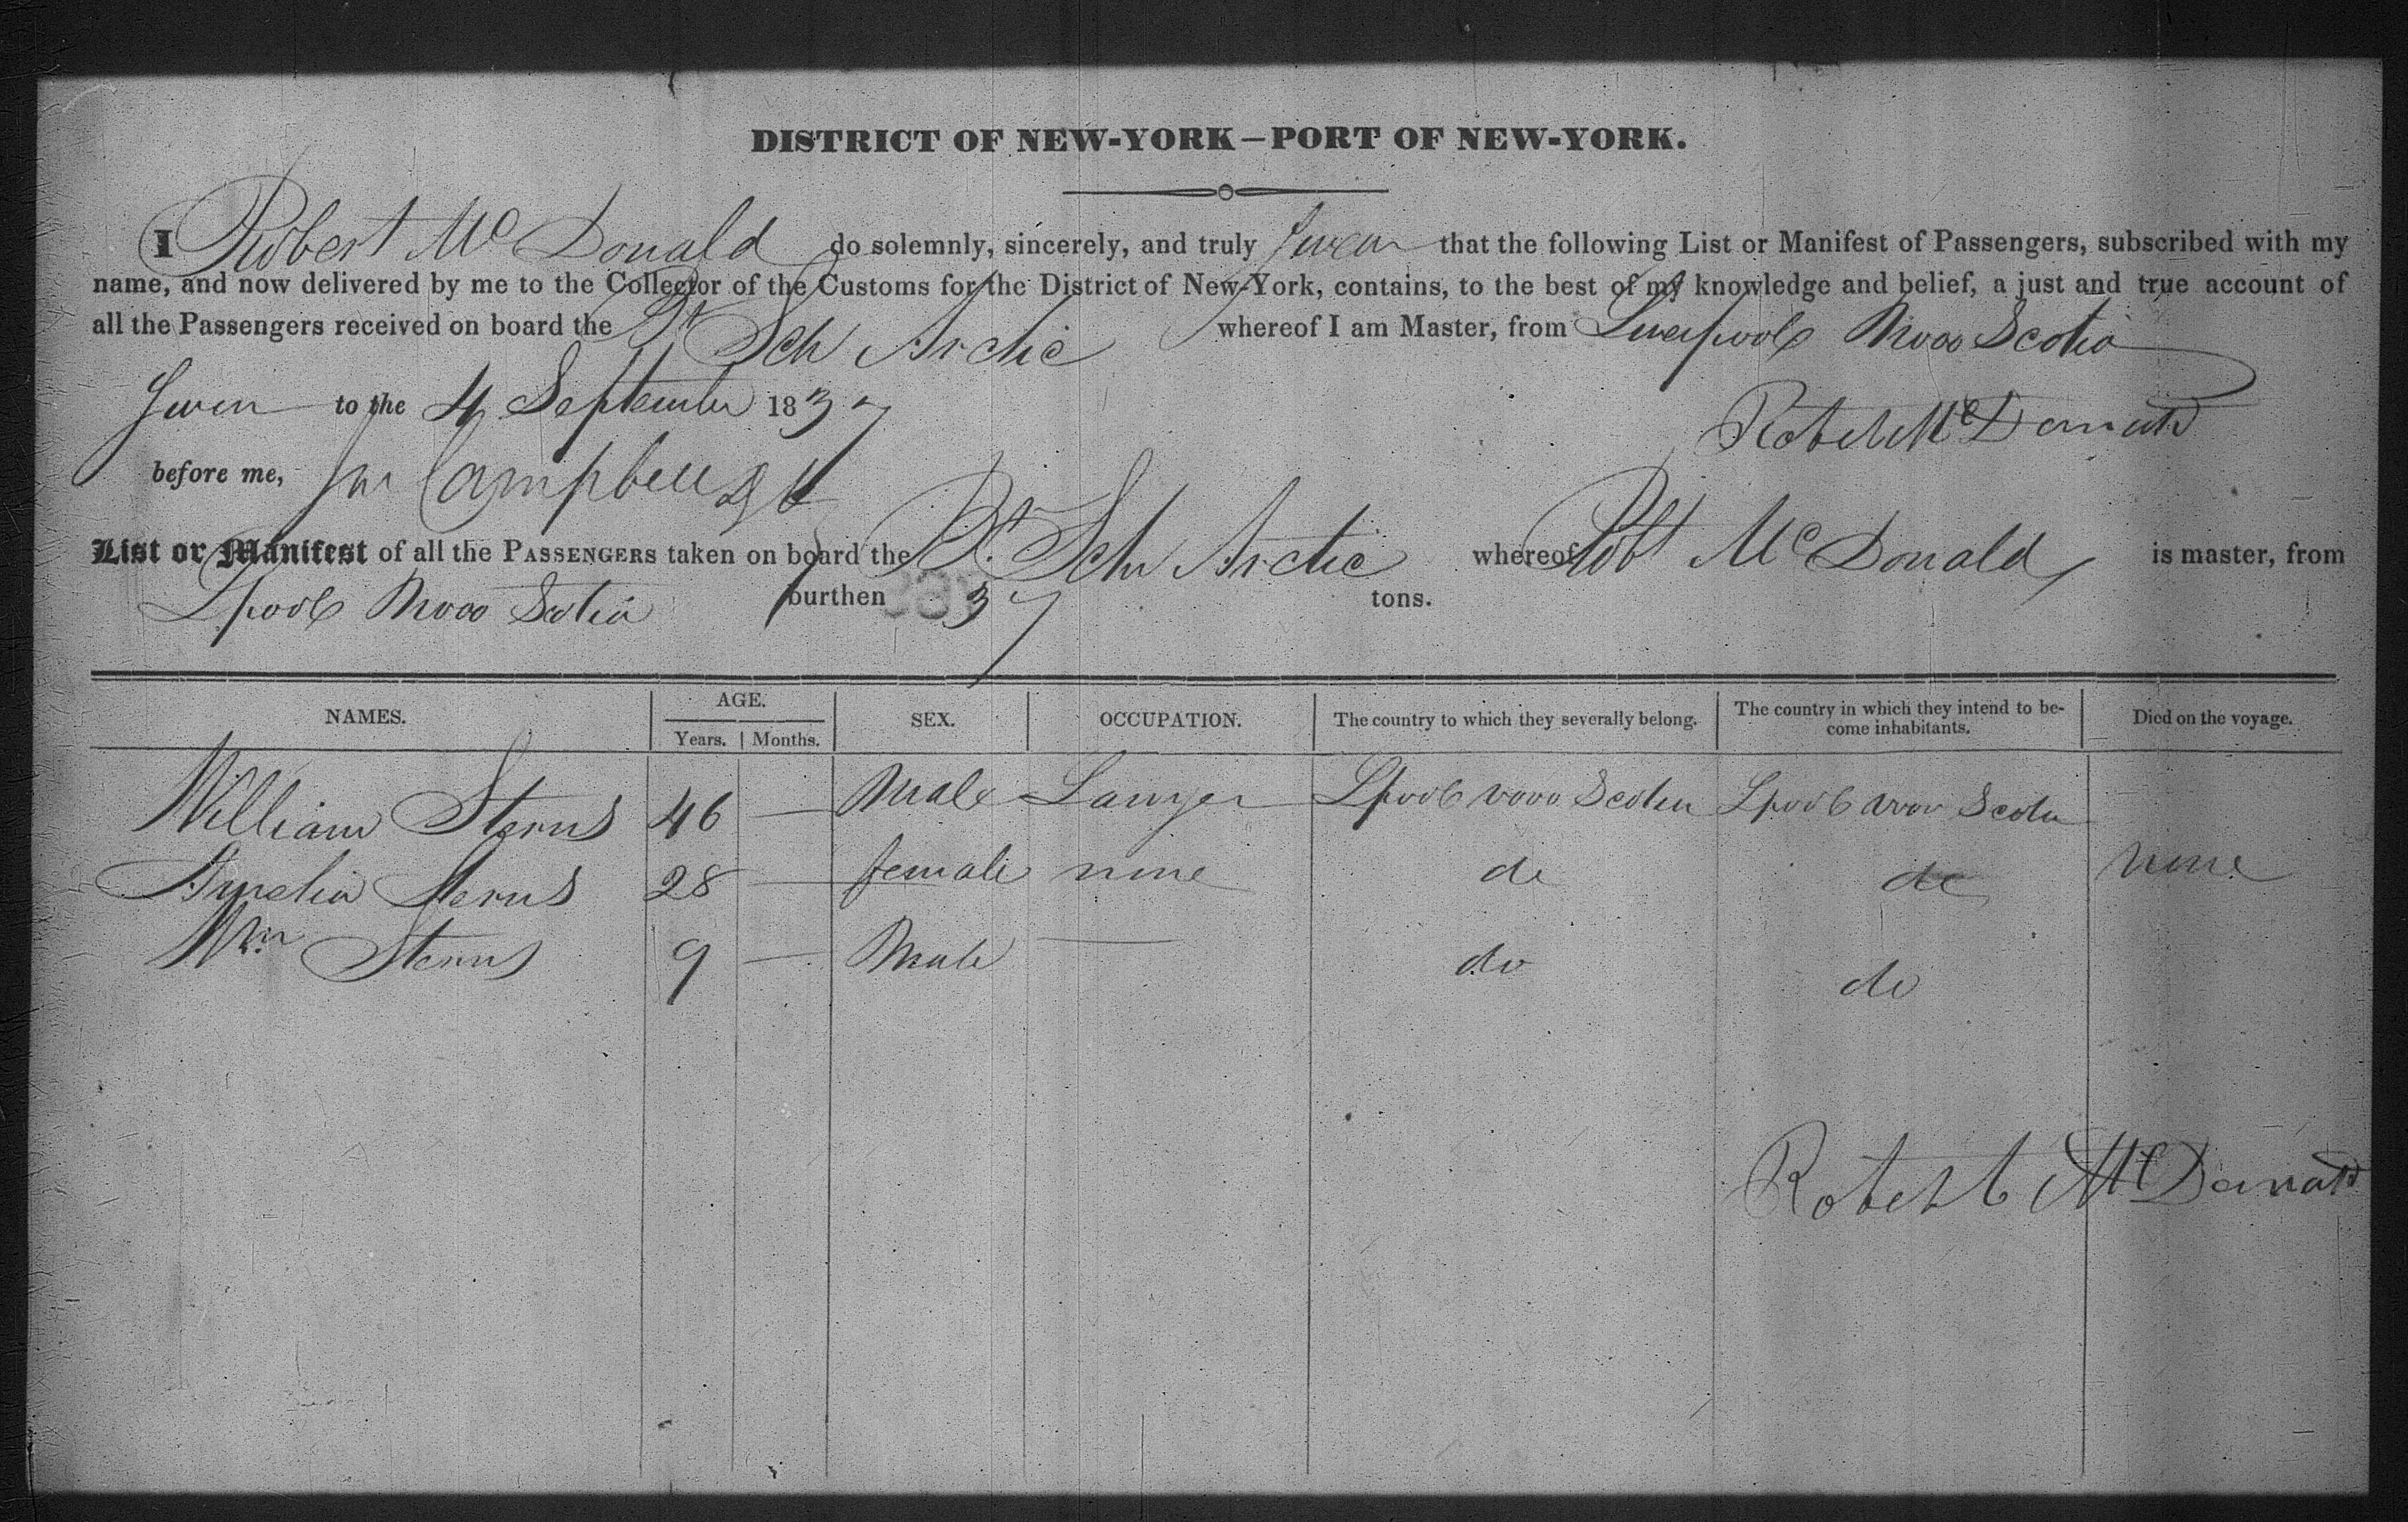 DISTRICT OF NEW-YORK—PORT OF NEW-YORK.
I Robert Mc Donald do solemnly, sincerely, and truly Swear that the following List or Manifest of Passengers, subscribed with my
name, and now delivered by me to the Collector of the Customs for the District of New-York, contains, to the best of my knowledge and belief, a just and true account of
all the Passengers received on board the Bt Sch Arctic whereof I am Master, from Liverpool Nova Scotia
Sworn to the 4 September 1837
Robert Mc Donald
before me, Campbell
List or Manifest of all the PASSENGERS taken on board the Bt. Schr Arctic whereof Robt Mc Donald is master, from
Lpool Nova Scotia burthen 37 tons.
NAMES. AGE. SEX. OCCUPATION. The country to which they severally belong. The country in which they intend to be-come inhabitants. Died on the voyage.
Years. Months.
William Sterns 46 — Male Lawyer Lpool Nova Scotia Lpool Nova Scotia
Amelia Sterns 28 — female none do do none
Wm Sterns 9 — Male — do do
Robert Mc Donald